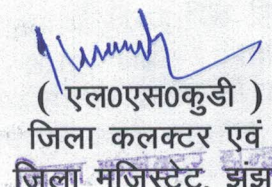 ( एल0एस0कुडी )
जिला कलक्टर एवं
जिला मजिस्टेट